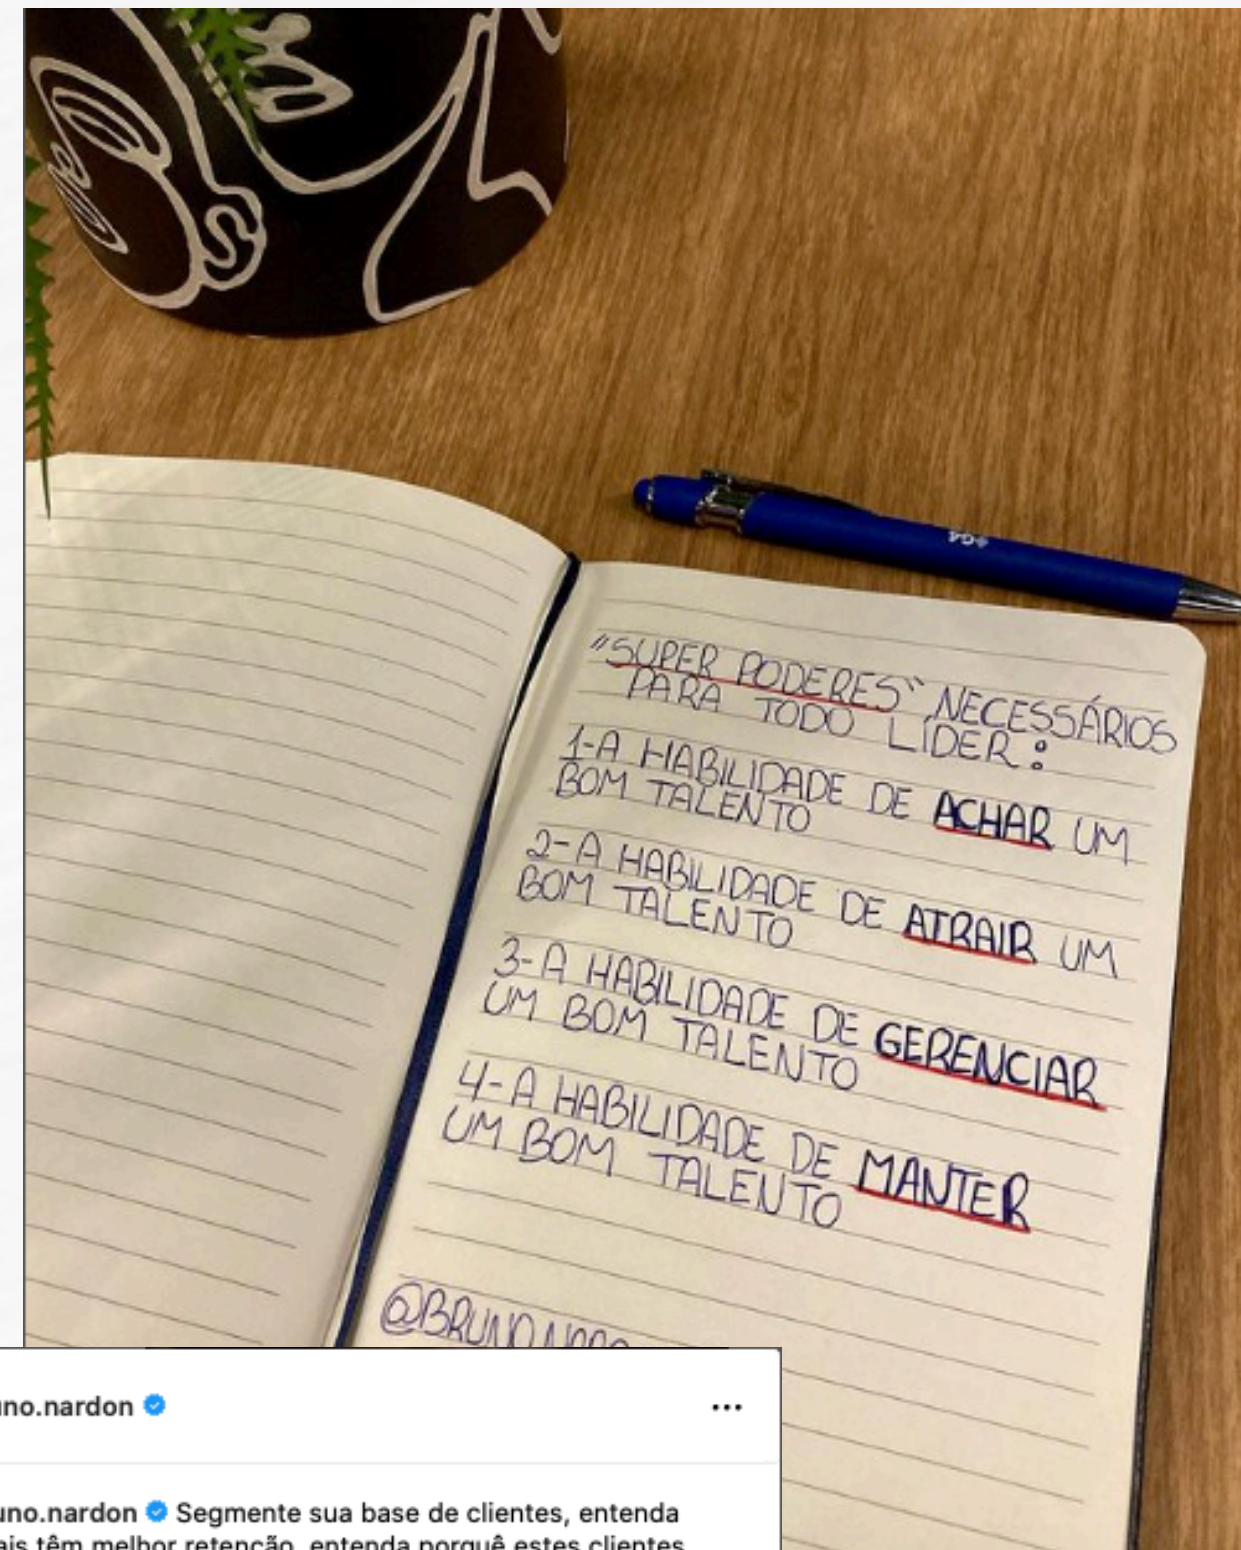 G4
"SUPER PODERES" NECESSÁRIOS
PARA TODO LÍDER:
1-A HABILIDADE DE ACHAR UM
BOM TALENTO
2-A HABILIDADE DE ATRAIR UM
BOM TALENTO
3-A HABILIDADE DE GERENCIAR
UM BOM TALENTO
4-A HABILIDADE DE MANTER
UM BOM TALENTO
uno.nardon
...
uno.nardon Segmente sua base de clientes, entenda
ais têm melhor retenção, entenda porquê estes clientes